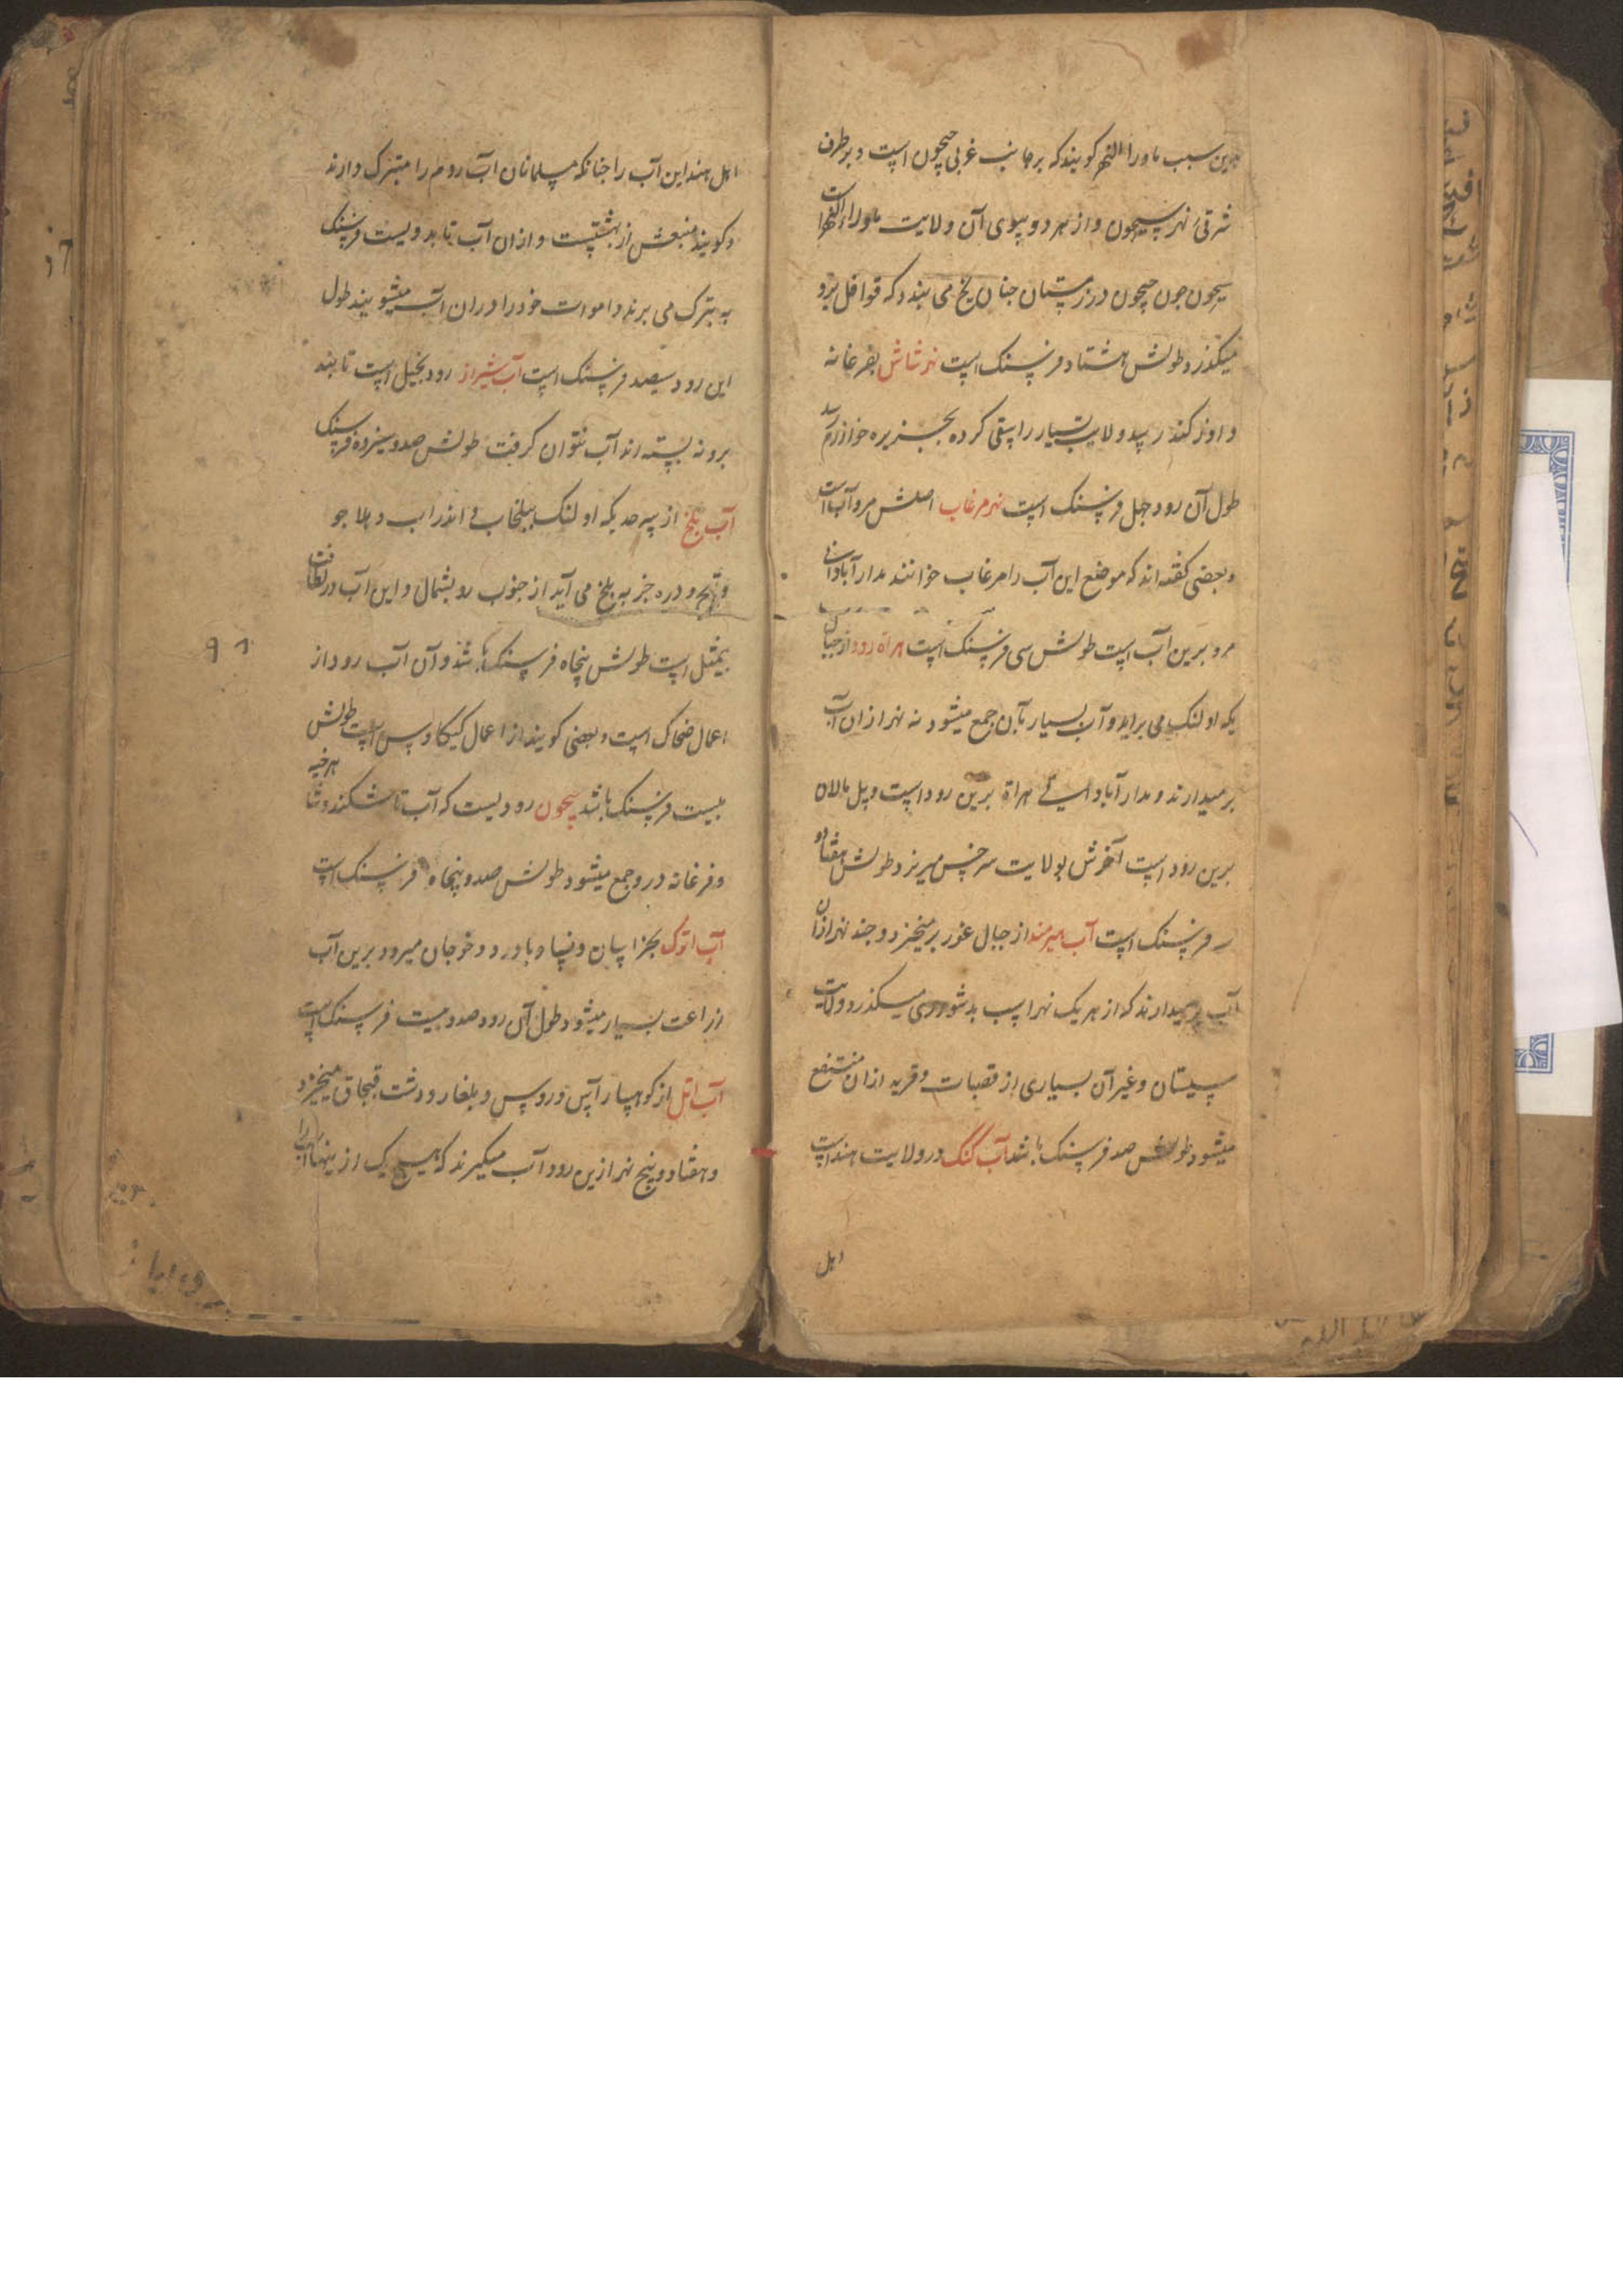 بدین سبب ماوراالنهر کویند که بر جانب غربی جیحون است و بر طرف
شرقی نهر سیحون و از هر دو سوی آن ولایت ماوراء النهر است
سیحون جون جیحون در زمستان جنان یخ می بندد که قوافل برو
میکذرد طولش هشتاد فرسنک است نهر شاش بفرغانه
و اوزکند رسد و ولایت بسیار را سقی کرده بجزیره خوارزم رسد
طول آن رود جهل فرسنک است نهر مرغاب اصلش مروآب است
و بعضی کفته اند که موضع این آب را مرغاب خوانند مدار آبادانی
مرو برین آب است طولش سی فرسنک است هراة رود از جبال
یکه اولنک می براید و آب بسیار بآن جمع میشود نه نهر از ان آب
بر میدارند و مدار آبادانی هراة برین رود است و پل مالان
برین رود است آخرش بولایت سرخس میریزد طولش هفتاد
فرسنک است آب هیرمند از جبال غور بر میخیزد و جند نهر ازان
آب بر میدارند که از هر یک نهر اسب بدشواری میکذرد و ولایت
سیستان و غیر آن بسیاری از قصبات و قریه ازان منتفع
میشود طولش صد فرسنک باشد آب کنک در ولایت هند است
اهل
اهل هند این آب را جنانکه مسلمانان آب زمزم را متبرک دارند
و کویند منبعش از بهشتست و ازان آب تا بدویست فرسنک
به تبرک می برند و اموات خود را دران آب میشویند طول
این رود سیصد فرسنک است آب شیراز رود بخیل است تا بند
برو نه بسته اند آب نتوان کرفت طولش صد و سیزده فرسنک
آب بلخ از سرحد یکه اولنک ببلخاب و اندراب و
و دره جز به بلخ می آید از جنوب رو بشمال و این آب در لطافت
بیمثل است طولش پنجاه فرسنک باشد و آن آب رود از
اعمال ضحاک است و بعضی کویند از اعمال کیکاوس است طولش
بیست فرسنک باشد سیحون رودیست که آب تاشکند و شاهرخیه
و فرغانه درو جمع میشود طولش صد و پنجاه فرسنک است
آب اترک بخراسان و نسا و باورد و خوجان میرود برین آب
زراعت بسیار میشود طول آن رود صد و بیست فرسنک است
آب اتل از کوهسار آس و روس و بلغار و دشت قبجاق میخیزد
و هفتاد و پنج نهر ازین رود آب میکیرند که هیج یک از ینها را
۹۱